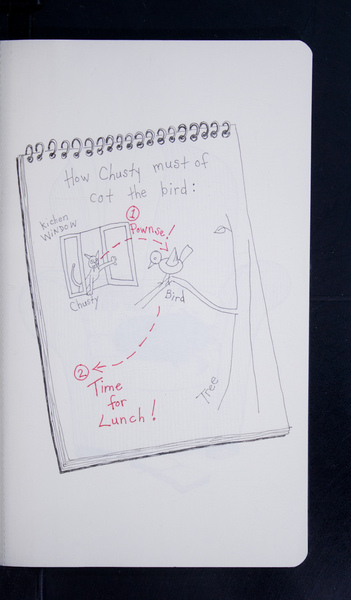 How Chusty must of
cot the bird:
Kichon
WINDOW
①
Pownse!
Chusty
Bird
②
Time
for
Lunch!
Tree